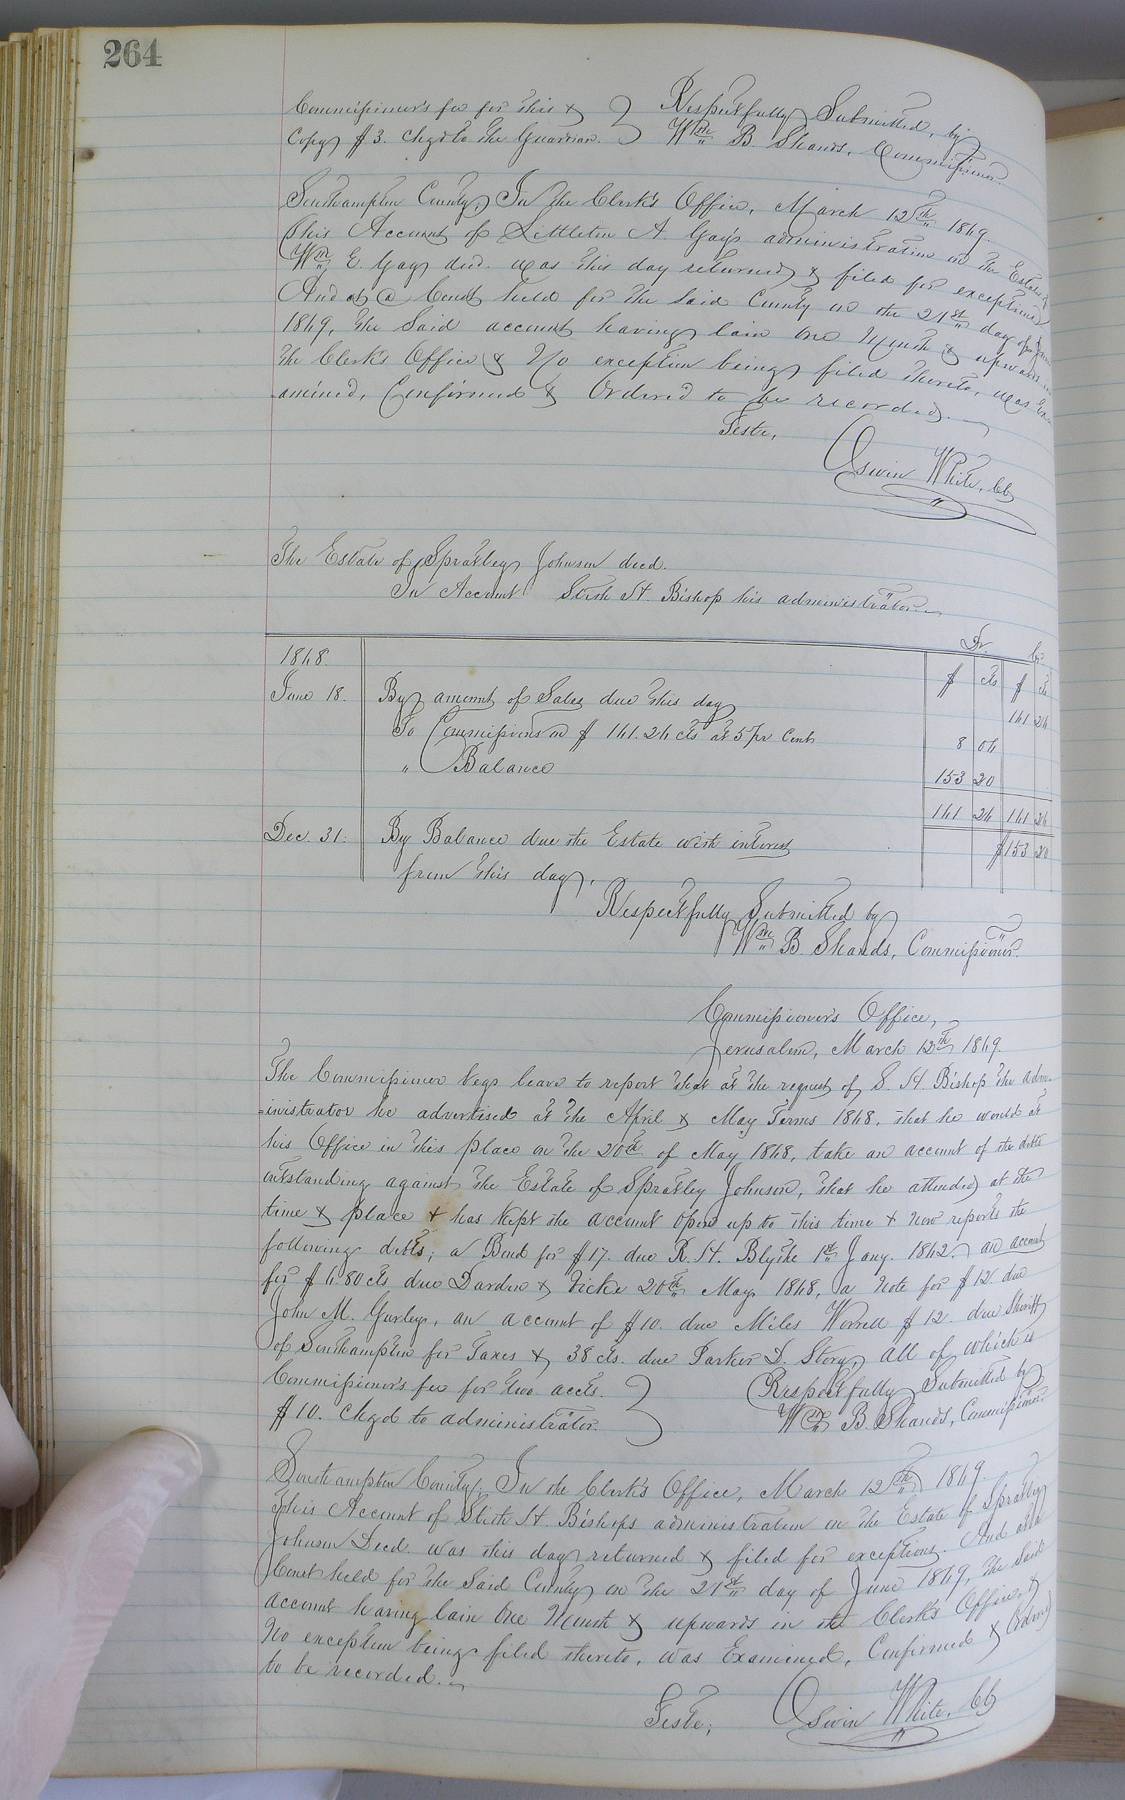 264
Commissioner's fee for this &
copy $3. chgd to the Guardian.
Respectfully Submitted, by
Wm B. Shands, Commissioner.
Southampton County, In the Clerk's Office, March 12th 1869.
This Account of Littleton A. Gay's administration on the Estate of
Wm E. Gay decd. was this day returned & filed for exceptions
And at a Court held for the said County on the 21st day of June
1869, the said account having lain one Month & upwards in
the Clerk's Office & No exception being filed thereto, was Ex-
amined, Confirmed & Ordered to be recorded.
Teste,
Oswin White, CC
The Estate of Spratley Johnson decd.
In Account Stith H. Bishop his administrator
Dr. Cr
1868. $ cts $ cts
June 18. By amount of Sales due this day 161 24
To Commissions on $161.24 cts at 5 pr Cent 8 04
" Balance 153 20
161 24 161 24
Dec. 31. By Balance due the Estate with interest $153 20
from this day,
Respectfully Submitted by
Wm B. Shands, Commissioner.
Commissioner's Office,
Jerusalem, March 12th 1869.
The Commissioner begs leave to report that at the request of S. H. Bishop the adm-
=inistrator he advertised at the April & May Terms 1868, that he would at
his Office in this place on the 20th of May 1868, take an account of the debts
outstanding against the Estate of Spratley Johnson, that he attended at the
time & place & has kept the account open up to this time & now reports the
following debts; a Bond for $17. due R. H. Blythe 1st Jany. 1862. an account
for $6.80 cts due Darden & Vicke 20th May 1868, a note for $12 due
John M. Gurley, an account of $10. due Miles Worrell $12. due Sheriff
of Southampton for Taxes & 38 cts. due Parker D. Story, all of which is
Commissioner's fee for two accts.
$10. chgd to administrator.
Respectfully Submitted by
Wm B. Shands, Commissioner.
Southampton County, In the Clerk's Office, March 12th 1869.
This Account of Stith H. Bishops administration on the Estate of Spratley
Johnson Decd. was this day returned & filed for exceptions. And at a
Court held for the Said County on the 21st day of June 1869, the said
account having lain One Month & upwards in the Clerk's Office, &
No exception being filed thereto, was Examined, Confirmed & Ordered
to be recorded.
Teste,
Oswin White, CC